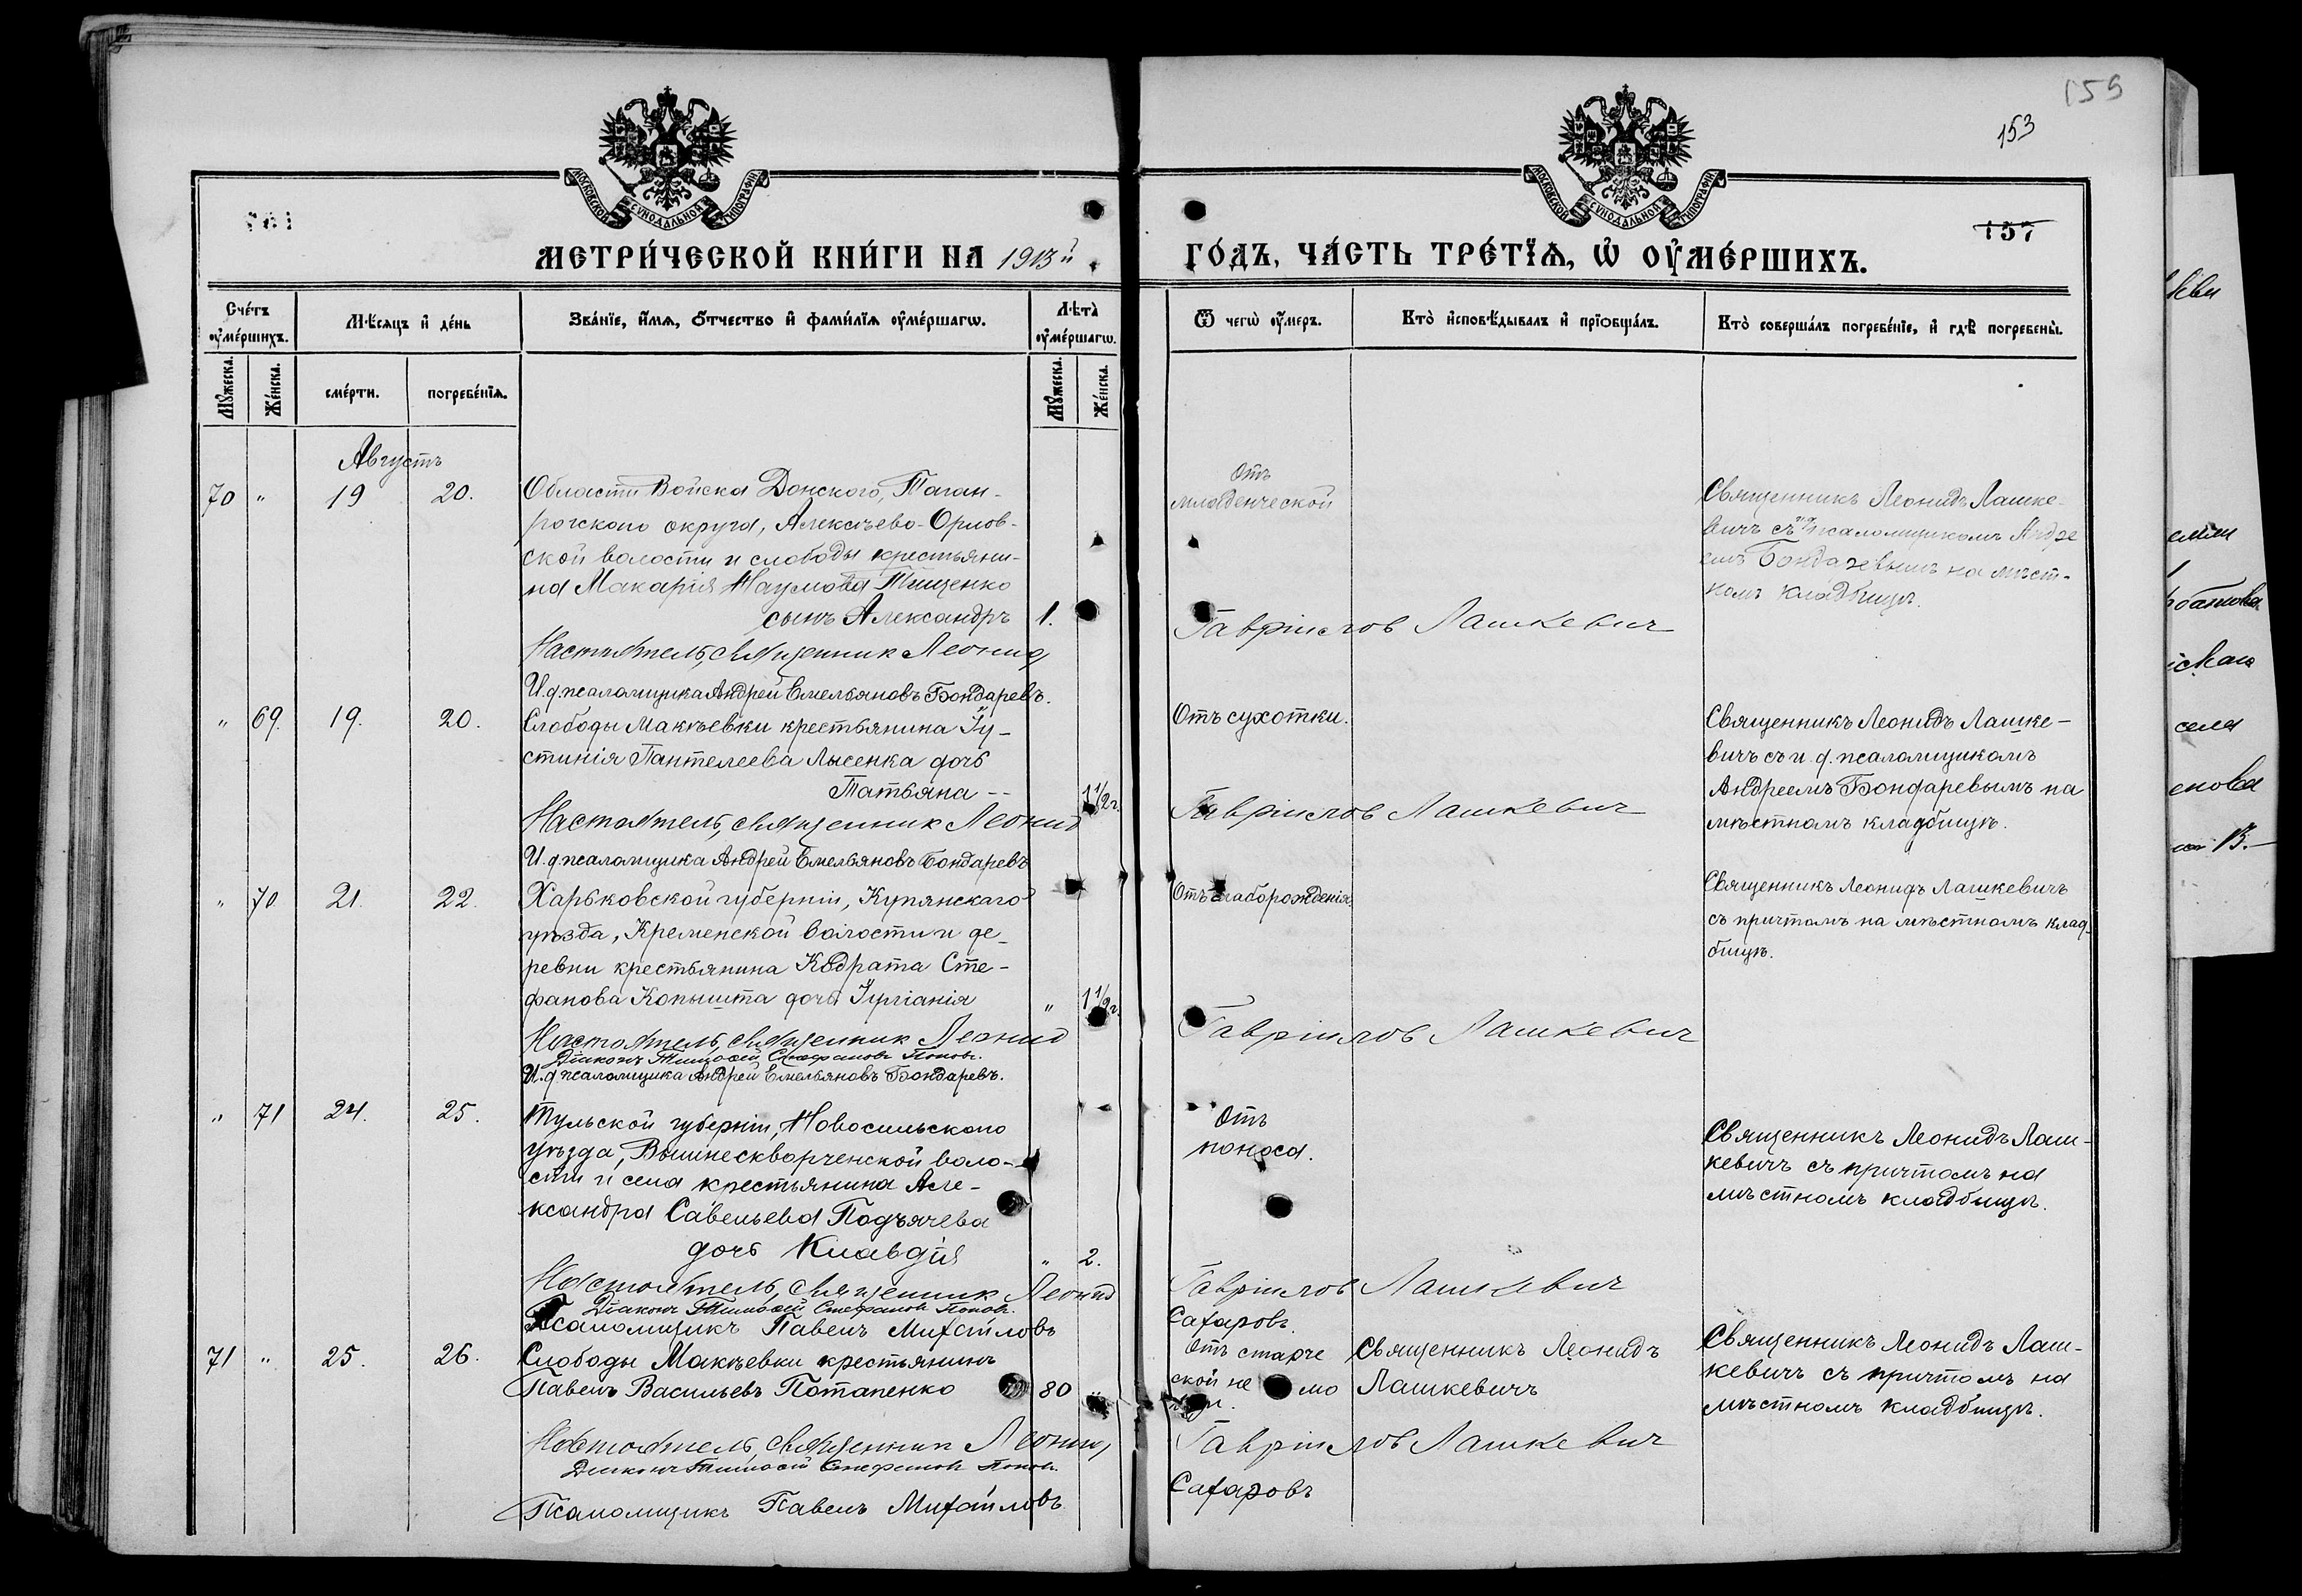 159
153
157
МОСКОВСКОЙ СѴНОДАЛЬНОЙ ТИПОГРАФІИ
МОСКОВСКОЙ СѴНОДАЛЬНОЙ ТИПОГРАФІИ
МЕТРИ́ЧЕСКОЙ КНИ́ГИ НА 1913й
ГО́ДЪ, ЧА́СТЬ ТРЕ́ТЇѦ, Ѽ ОУ҆МЕ́РШИХЪ.
Сче́тъ оу҆ме́ршихъ.
Мѣ́сяцъ и҆ де́нь
Зва́нїе, и҆́мѧ, ѻ҆́тчество и҆ фами́лїѧ оу҆ме́ршагѡ.
Лѣ́та̀ оу҆ме́ршагѡ.
Ѿ чегѡ̀ оу҆́меръ.
Кто̀ и҆сповѣ́дывалъ и҆ прїѻбща́лъ.
Кто̀ соверша́лъ погребе́нїе, и҆ гдѣ̀ погребены̀.
Мꙋ́жеска.
Же́нска.
сме́рти.
погребе́нїѧ.
Мꙋ́жеска.
Же́нска.
Августъ
70 " 19 20.
Области Войска Донского, Таган-
рогского округа, Алексѣево-Орлов-
ской волости и слободы крестьяни-
на Макарія Наумова Тищенко
сынъ Александръ 1.
Отъ
младенческой
Священникъ Леонидъ Лашке-
вичъ съ псаломщикомъ Андре
емъ Бондаревымъ на мѣст-
номъ кладбищѣ.
Настоятель, священник Леонид Гавріилов Лашкевич
И. д. псаломщика Андрей Емельяновъ Бондаревъ.
" 69. 19. 20.
Слободы Макѣевки крестьянина Іу-
стинія Пантелеева Лысенка дочь
Татьяна -- 1 1/2 г.
Отъ сухотки.
Священникъ Леонидъ Лашке-
вичъ съ и. д. псаломщикомъ
Андреемъ Бондаревымъ на
мѣстномъ кладбищѣ.
Настоятель, священник Леонид Гавріилов Лашкевич
И. д. псаломщика Андрей Емельяновъ Бондаревъ
" 70 21. 22.
Харьковской губерніи, Купянскаго
уѣзда, Кременской волости и де-
ревни крестьянина Кодрата Сте-
фанова Копышта дочь Іуліанія " 1 1/2 г.
Отъ слаборожденія
Священникъ Леонидъ Лашкевичъ
съ причтомъ на мѣстномъ клад-
бищѣ.
Настоятель, священник Леонид Гавріилов Лашкевич
Діаконъ Тимофей Стефановъ Поповъ.
И. д. псаломщика Андрей Емельяновъ Бондаревъ.
" 71 24. 25.
Тульской губерніи, Новосильского
уѣзда, Вышнескворченской воло-
сти и села крестьянина Але-
ксандра Савельева Подъячева
дочь Клавдія " 2.
Отъ
поноса.
Священникъ Леонидъ Лаш-
кевичъ съ причтомъ на
мѣстномъ кладбищѣ.
Настоятель, священник Леонид Гавріилов Лашкевич
Діаконъ Тимофей Стефановъ Поповъ.
Псаломщикъ Павелъ Михаиловъ Сахаровъ.
71 " 25. 26.
Слободы Макѣевки крестьянинъ
Павелъ Васильевъ Потапенко 80 "
Отъ старче
ской не мо
Священникъ Леонидъ
Лашкевичъ
Священникъ Леонидъ Лаш-
кевичъ съ причтомъ на
мѣстномъ кладбищѣ.
Настоятель, священник Леонид Гавріилов Лашкевич
Діаконъ Тимофей Стефановъ Поповъ.
Псаломщикъ Павелъ Михаиловъ Сахаровъ
села
енова